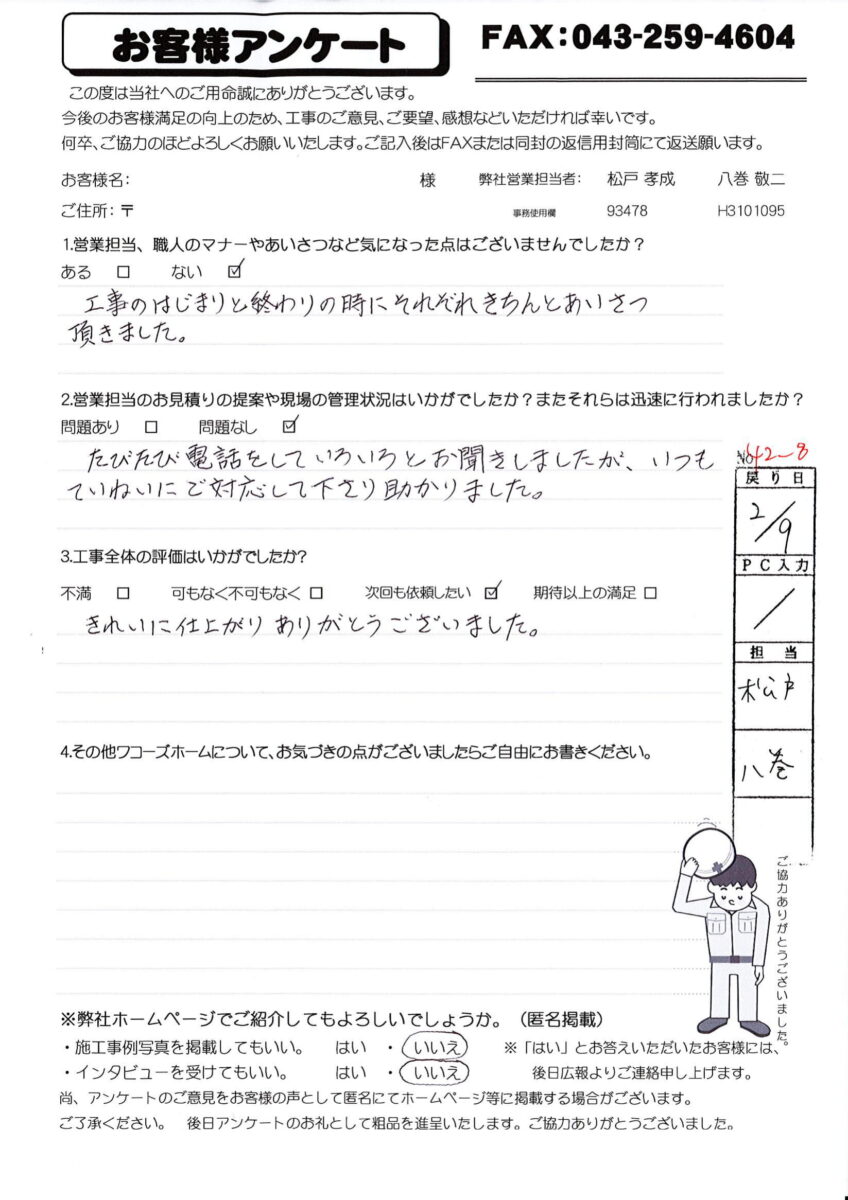 お客様アンケート
FAX:043-259-4604
この度は当社へのご用命誠にありがとうございます。
今後のお客様満足の向上のため、工事のご意見、ご要望、感想などいただければ幸いです。
何卒、ご協力のほどよろしくお願いいたします。ご記入後はFAXまたは同封の返信用封筒にて返送願います。
お客様名： 様 弊社営業担当者： 松戸 孝成 八巻 敬二
ご住所：〒 事務使用欄 93478 H3101095
1.営業担当、職人のマナーやあいさつなど気になった点はございませんでしたか？
ある □ ない ☑
工事のはじまりと終わりの時にそれぞれきちんとあいさつ
頂きました。
2.営業担当のお見積りの提案や現場の管理状況はいかがでしたか？またそれらは迅速に行われましたか？
問題あり □ 問題なし ☑
たびたび電話をしていろいろとお聞きしましたが、いつも
ていねいにご対応して下さり助かりました。
3.工事全体の評価はいかがでしたか?
不満 □ 可もなく不可もなく □ 次回も依頼したい ☑ 期待以上の満足 □
きれいに仕上がりありがとうございました。
4.その他ワコーズホームについて、お気づきの点がございましたらご自由にお書きください。
No 42-8
戻り日
2/9
PC入力
/
担当
松戸
八巻
ご協力ありがとうございました。
※弊社ホームページでご紹介してもよろしいでしょうか。（匿名掲載）
・施工事例写真を掲載してもいい。 はい ・ いいえ ※「はい」とお答えいただいたお客様には、
・インタビューを受けてもいい。 はい ・ いいえ 後日広報よりご連絡申し上げます。
尚、アンケートのご意見をお客様の声として匿名にてホームページ等に掲載する場合がございます。
ご了承ください。 後日アンケートのお礼として粗品を進呈いたします。ご協力ありがとうございました。